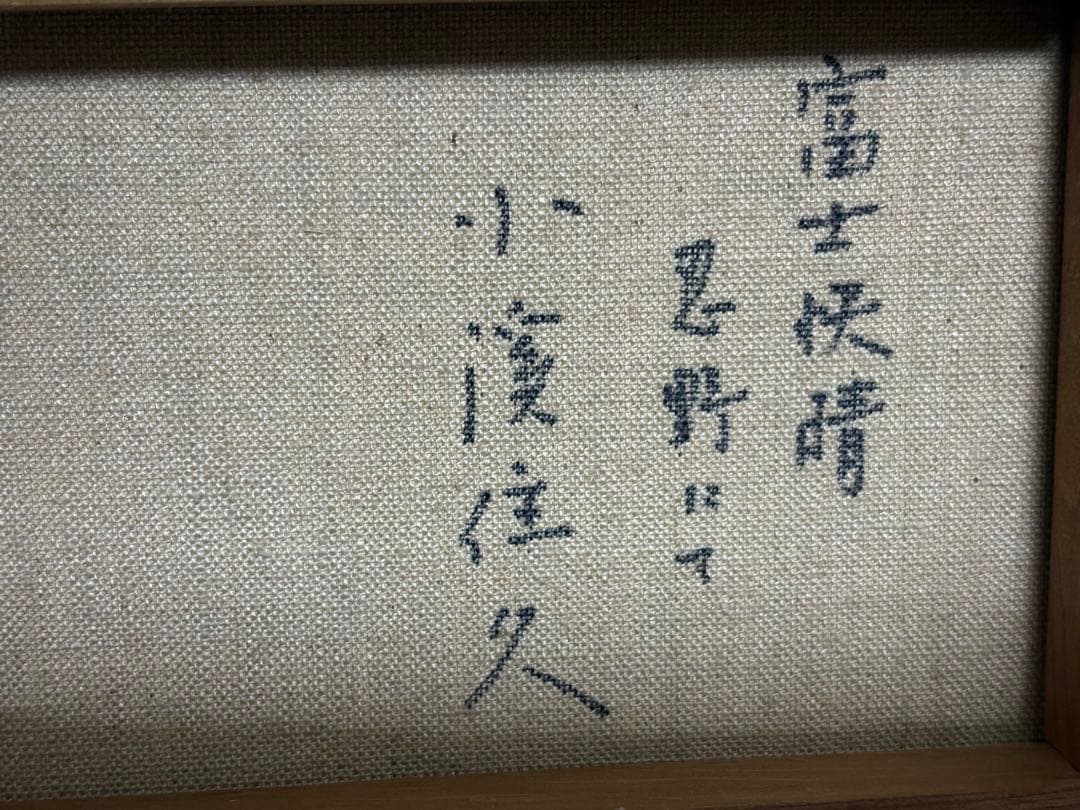 富士快晴
忍野にて
小濱住久